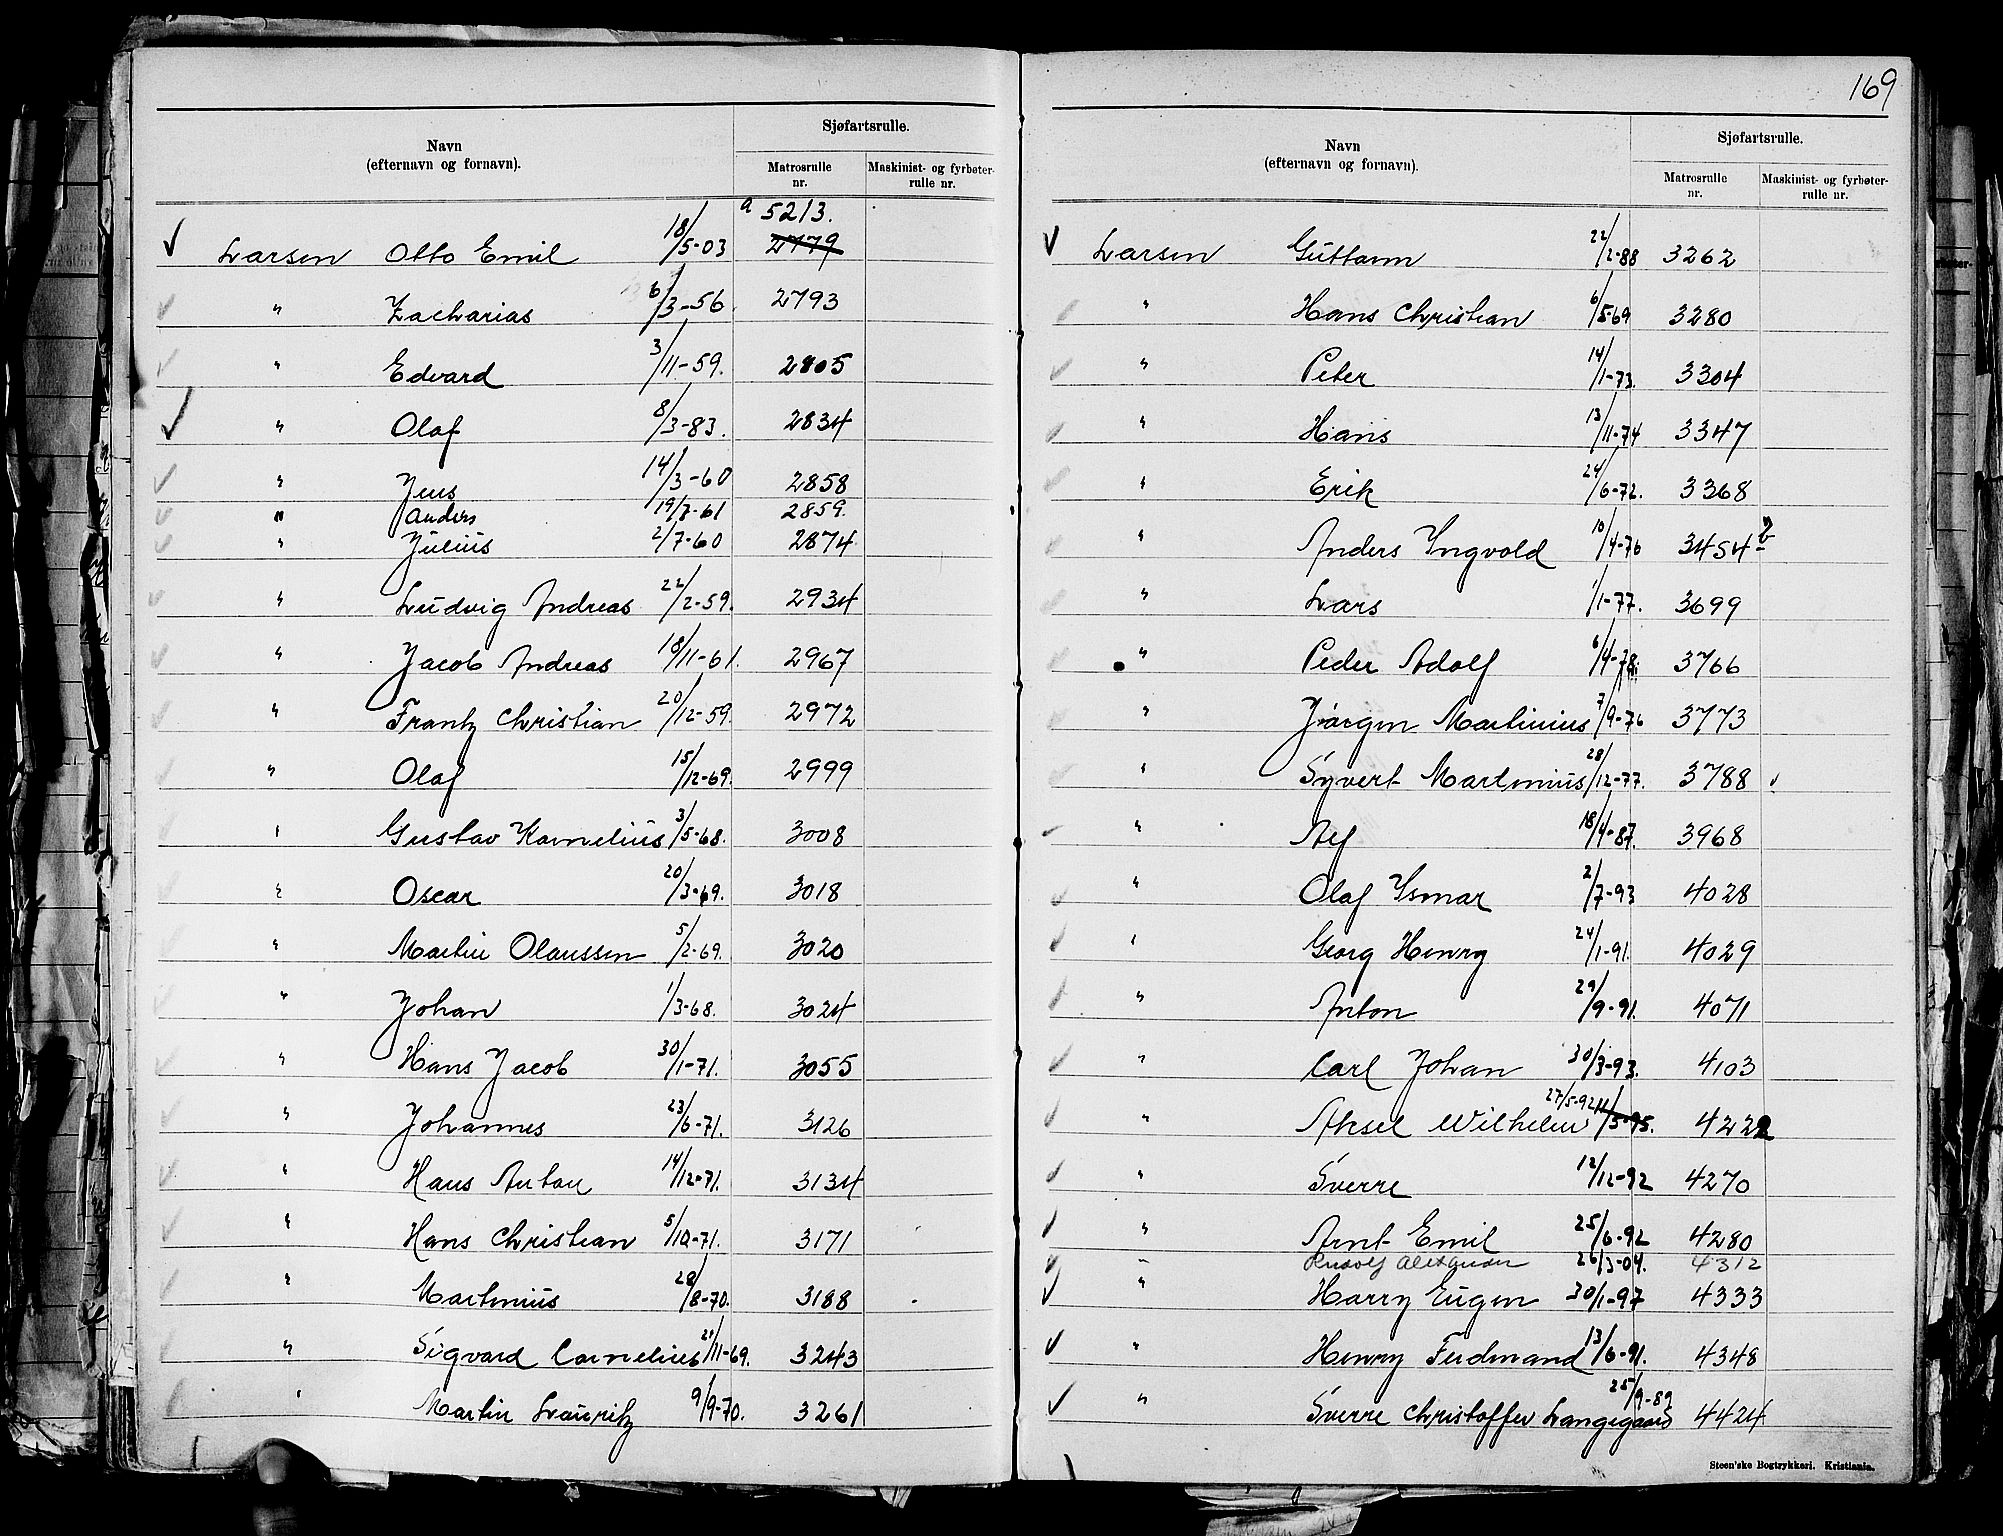 Navn
(efternavn og fornavn).
Sjøfartsrulle.
Matrosrulle nr.
Maskinist- og fyrbøter-rulle nr.
a 5213.
Larsen Otto Emil 18/5-03 2779
" Zacharias 6/3-56. 2793
" Edvard 3/11-59. 2805
" Olaf 8/3-83. 2834
" Jens 14/3-60 2858
" Anders 19/7-61 2859.
" Julius 2/7-60 2874
" Ludvig Andreas 22/2-59. 2934
" Jacob Andreas 18/11-61. 2967
" Frantz Christian 20/12-59. 2972
" Olaf 15/12-69. 2999
" Gustav Kornelius 3/5-68. 3008
" Oscar 20/3-69. 3018
" Martin Olaussen 5/2-69. 3020
" Johan 1/3-68. 3024
" Hans Jacob 30/1-71. 3055
" Johannes 23/6-71. 3126
" Hans Anton 14/12-71. 3134
" Hans Christian 5/10-71. 3171
" Martinius 28/8-70. 3188
" Sigvard Cornelius 21/11-69. 3243
" Martin Lauritz 9/9-70. 3261
169
Navn
(efternavn og fornavn).
Sjøfartsrulle.
Matrosrulle nr.
Maskinist- og fyrbøter-rulle nr.
Larsen Guttorm 22/2-88 3262
" Hans Christian 6/5-69 3280
" Peter 14/1-73. 3304
" Hans 13/11-74 3347
" Erik 24/6-72. 3368
" Anders Yngvold 10/4-76 3454
" Lars 1/1-77. 3699
" Peder Adolf 6/4-78. 3766
" Jørgen Martinius 7/9-76 3773
" Syvert Martinius 28/12-77. 3788
" Alf 18/4-87. 3968
" Olaf Ysmar 2/7-93 4028
" Georg Henry 24/1-91. 4029
" Anton 29/9-91. 4071
" Carl Johan 30/3-93. 4103
" Aksel Wilhelm 27/5-92 11/5-95. 4222
" Sverre 12/12-92 4270
" Arnt Emil 25/6-92 4280
" Rudolf Alexander 26/3-04. 4312
" Harry Eugen 30/1-97 4333
" Henry Ferdinand 13/6-91. 4348
" Sverre Christoffer Langegaard 25/9-89 4424
Steen'ske Bogtrykkeri. Kristiania.